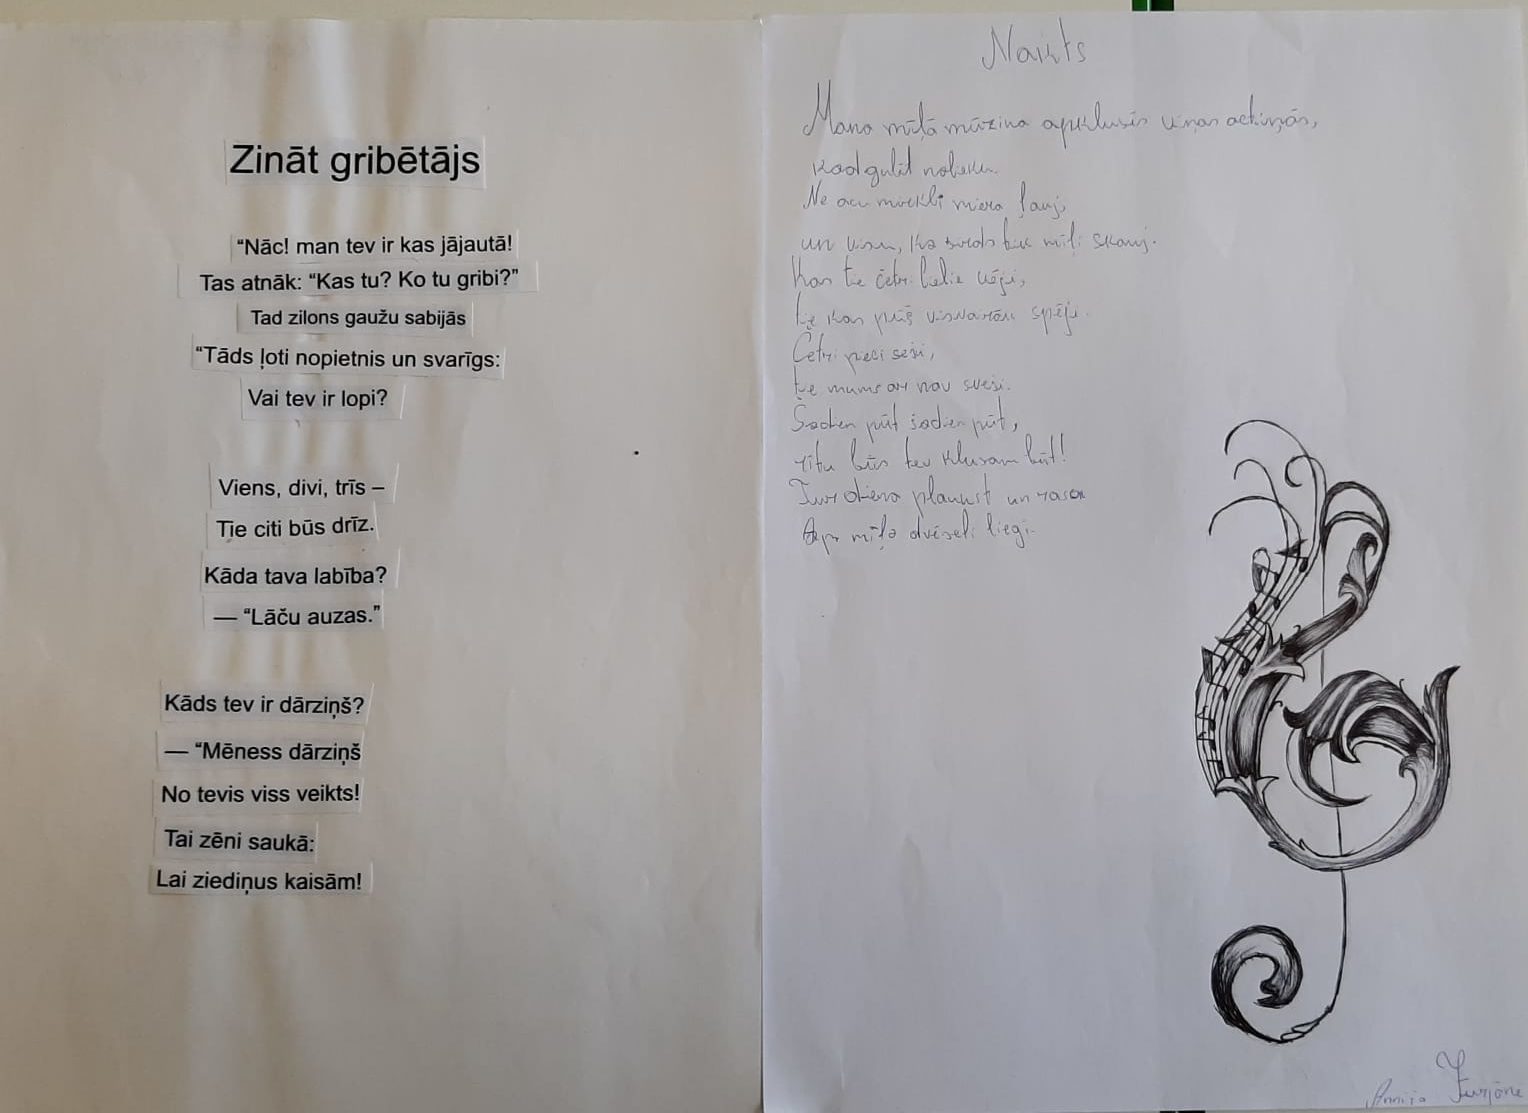 Zināt gribētājs
“Nāc! man tev ir kas jājautā!
Tas atnāk: “Kas tu? Ko tu gribi?”
Tad zilons gaužu sabijās
“Tāds ļoti nopietnis un svarīgs:
Vai tev ir lopi?
Viens, divi, trīs –
Tie citi būs drīz.
Kāda tava labība?
— “Lāču auzas.”
Kāds tev ir dārziņš?
— “Mēness dārziņš
No tevis viss veikts!
Tai zēni saukā:
Lai ziediņus kaisām!
Mana mīļā mūziņa apklusīs viņas actiņās,
kad gulēt
Ne acu mirkli miera ļauj,
un visu, ko sirds mīļi skauj.
Kas tie četri lielie vēji,
tie kas pūš visvairāk spēji.
Četri pieci seši,
tie mums ar nav sveši.
Šodien pūt šodien pūt,
rītu būs tev klusam būt!
Tur diena plaukst un rasa
mīļo dvēseli liegi.
Annija